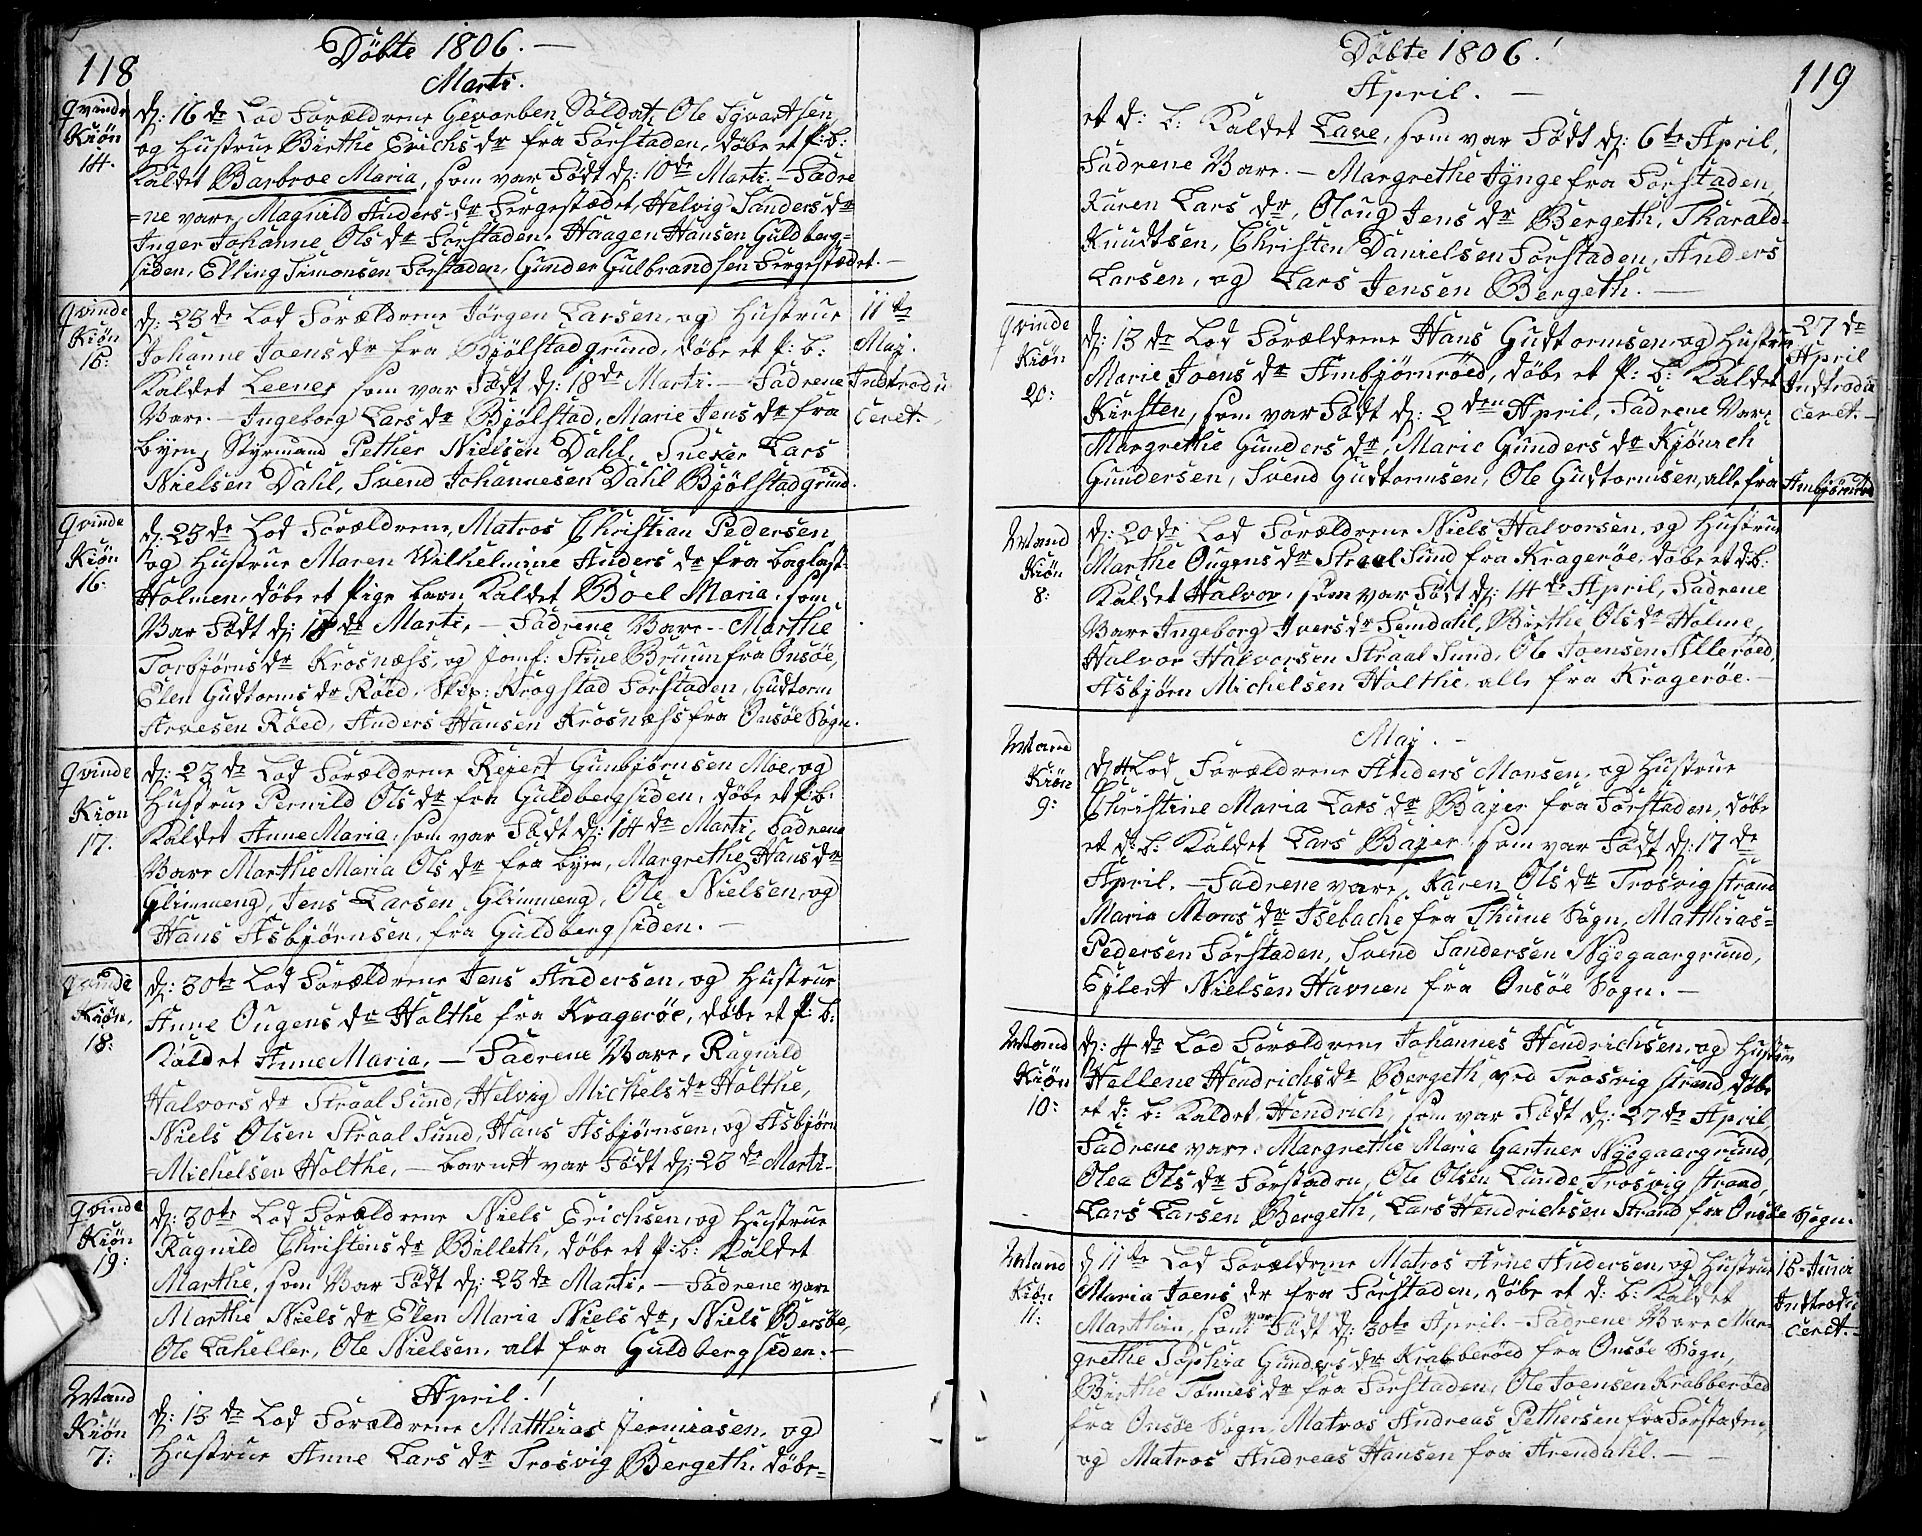 118
Döbte 1806. —
Marti.
Qvinde
Kiön
14.
dj: 16 de Lod Forældrene Gevorben Soldat, Ole Sÿvartsen,
og Hustrue Birthe Erichs dr fra Forstaden, döbe et P: b:
Kaldet Barbroe Maria, som var Födt dj: 10de Marti. - Fadre
=ne vare, Magnild Anders dr Fergestædet, Helvig Sanders dr
Inger Johanne Ols dr Forstaden, Haagen Hansen Guldberg=
siden, Elling Simonsen Forstaden, Gunder Gulbrandsen Fergestædet. —
Qvinde
Kiön
15:
dj: 23 de Lod Forældrene Jörgen Larsen, og Hustrue
Johanne Joens dr fra Bjölstadgrund, döbe et P: b:
Kaldet Leene, som var Födt dj: 18de Marti. — Fadrene
Vare. — Ingeborg Lars dr Bjölstad, Marie Jens dr fra
byen, Styrmand Pether Nielsen Dahl, Snecker Lars
Nielsen Dahl, Svend Johannesen Dahl Bjölstadgrund.
11 te
Maj.
Indtrodu
ceret.
Qvinde
Kiön
16:
dj: 23 de Lod Forældrene, Matros Christian Pedersen
og Hustrue Maren Wilhelmine Anders dr fra baglast-
Holmen, döbe et Pige barn Kaldet Boel Maria, som
Var Födt dj: 18 de Marti, — Fadrene Vare — Marthe
Torbjörns dr Krosnæss, og Jomf: Stine Bruun fra Onsöe,
Elen Gudtorms dr Röed, Skip: Krogstad Forstaden, Gudtorm
Arvesen Röed, Anders Hansen Krosnæss fra Onsöe Sogn.
Qvinde
Kion
17.
dj: 23 de Lod Forældrene Rejert Gunbjörnsen Moe, og
Hustrue Pernild Ols dr fra Guldbergsiden, döbe et P: b:
Kaldet Anne Maria, som var Födt dj: 14 de Marti, Fadrene
Vare Marthe Maria Ols dr fra byen, Margrethe Hans dr
Glimmeng, Jens Larsen Glimmeng, Ole Nielsen, og
Hans Asbjörnsen, fra Guldbergsiden. —
Qvinde
Kiön,
18:
dj: 30te Lod Forældrene Jens Andersen, og Hustrue
Anne Ougens dr Holthe fra Kragerøe, döbe et P: b:
Kaldet Anne Maria, — Fadrene Vare, Ragnild
Halvors dr Straal Sund, Helvig Michels dr Holthe,
Niels Olsen Straal Sund, Hans Asbjörnsen, og Asbjörn
=Michelsen Holthe, — barnet var Födt dj: 23 de Marti-
Qvinde
Kiön
19:
dj: 30te Lod Forældrene Niels Erichsen, og Hustrue
Ragnild Christens dr Billeth, döbe et P: b: Kaldet
Marthe, som Var Födt dj: 23 de Marti. — Fadrene vare
Marthe Niels dr Elen Maria Niels dr, Niels Bersöe,
Ole Laheller, Ole Nielsen, alt fra Guldbergsiden. —
April.
Mand
Kiön
7:
dj: 13 de Lod Forældrene Matthias Jermiasen, og
Hustrue Anne Lars dr Trosvig Bergeth, döbe=
119
Döbte 1806.
April. —
et d: b: Kaldet Lave, som var Födt dj: 6te April,
Fadrene Vare. — Margrethe Jÿnge fra Forstaden,
Karen Lars dr, Oloug Jens dr Bergeth, Tharald-
Knudtsen, Christen Danielsen Forstaden, Anders
Larsen, og Lars Jensen Bergeth. —
Qvinde
Kiön
20:
dj: 13 de Lod Forældrene Hans Gudtormsen, og Hustrue
Marie Joens dr Ambjörnröed, döbe et P: b: Kaldet
Kirsten, som var Födt dj: 2 den April, Fadrene Vare
Margrethe Gunders dr, Marie Gunders dr Kjönrch
Gundersen, Svend Gudtormsen, Ole Gudtormsen, alle fra Ambjörnröd
27 de
April
Indtrodu
ceret. —
Mand
Kiön
8:
dj: 20de Lod Forældrene Niels Halvorsen, og Hustrue
Marthe Ougens dr Straal Sund fra Kragerøe, döbe et d: b:
Kaldet Halvor, som var Födt dj: 14 de April, Fadrene
Vare Ingeborg Ivers dr Semdahl, Birthe Ols dr Holme,
Halvor Halvorsen Straal Sund, Ole Joensen Alleröed,
Asbjörn Michelsen Holthe, alle fra Kragerøe. —
Maj. —
Mand
Kiön
9:
dj 4 Lod Forældrene Anders Monsen, og Hustrue
Christine Maria Lars dr Bajer fra Forstaden, döbe
et d: b: Kaldet Lars Bajer, som var Födt dj: 17 de
April. — Fadrene vare, Karen Ols dr Trosvig strand
Maria Mons dr Isebache fra Thune Sogn, Matthias=
Pedersen Forstaden, Svend Sandersen Nÿegaargrund,
Ejlert Nielsen Havnen fra Onsöe Sogn. —
Mand
Kiön
10:
dj: 4 de Lod Forældrene Johannes Hendrichsen, og Hustrue
Hellene Hendrichs dr Bergeth, ved Trosvig strand, döbe
et d: b: Kaldet Hendrich, som var Födt dj: 27 de April,
Fadrene vare: Margrethe Maria Gartner Nÿegaargrund,
Olea Ols dr Forstaden, Ole Olsen Lunde, Trosvig strand,
Lars Larsen Bergeth, Lars Hendrichsen Strand fra Onsöe Sogn.
Mand
Kiön
11:
dj 11 te Lod Forældrene Matros Arne Andersen, og Hustrue
Maria Joens dr fra Forstaden, döbe et d: b: Kaldet
Marthin, som var Födt dj: 30te April. — Fadrene Vare Mar-
grethe Sophia Gunders dr Krabberöed fra Onsöe Sogn,
Birthe Tönnes dr fra Forstaden, Ole Joensen Krabberöed
fra Onsöe Sogn, Matros Andreas Pethersen fra Forstaden,
og Matros Andreas Hansen fra Arendahl. —
15 Juni
Indtrodu
ceret. —